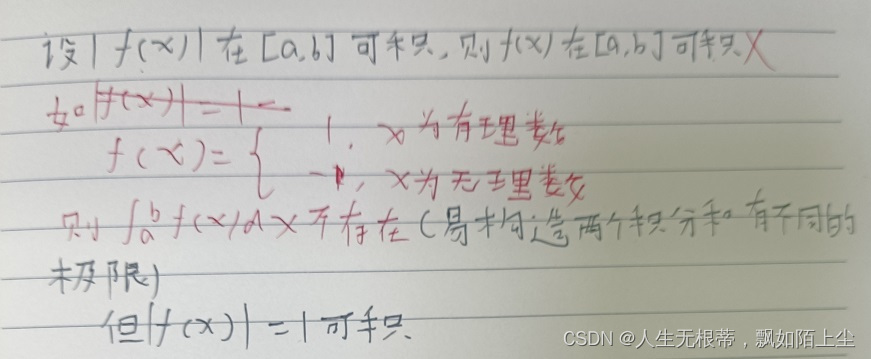 设|f(x)|在[a,b]可积,则f(x)在[a,b]可积X
如|f(x)|=1
f(x)={ 1, x为有理数
-1, x为无理数
则∫_a^b f(x)dx不存在(易构造两个积分和有不同的
极限)
但|f(x)|=1可积
CSDN @人生无根蒂，飘如陌上尘